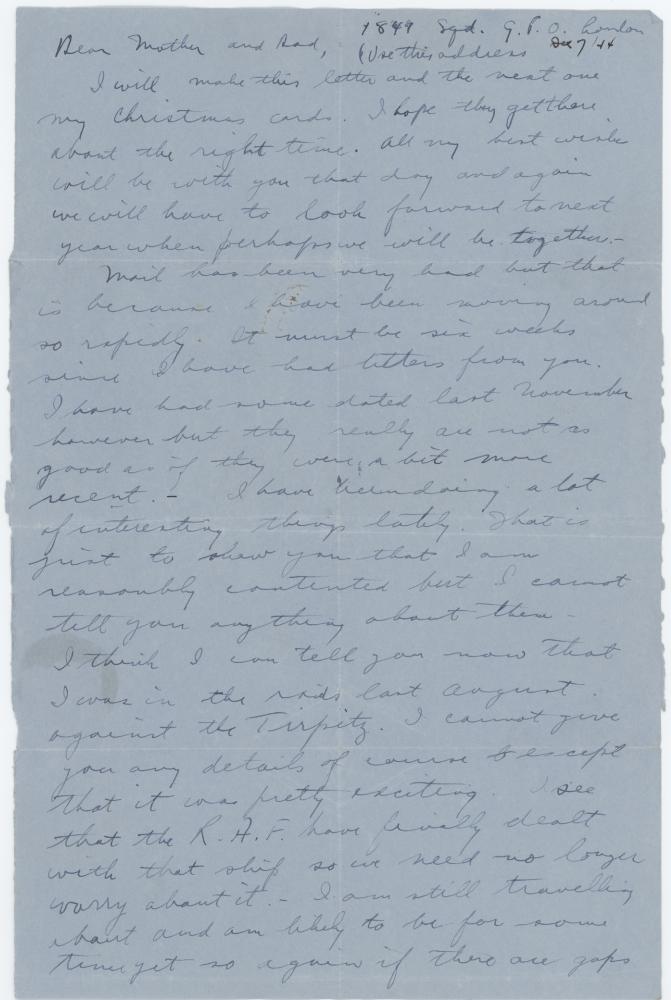 1849 Sqd. G.P.O. London
Dear Mother and Dad, (Use this address Dec 7/44
I will make this letter and the next one
my Christmas cards. I hope they get there
about the right time. All my best wishes
will be with you that day and again
we will have to look forward to next
year when perhaps we will be together.-
Mail has been very bad but that
is because I have been moving around
so rapidly. It must be six weeks
since I have had letters from you.
I have had some dated last November
however but they really are not as
good as if they were a bit more
recent. - I have been doing a lot
of interesting things lately. That is
just to show you that I am
reasonably contented but I cannot
tell you anything about them -
I think I can tell you now that
I was in the raids last August
against the Tirpitz. I cannot give
you any details of course except
that it was pretty exciting. I see
that the R.A.F. have finally dealt
with that ship so we need no longer
worry about it. - I am still travelling
about and am likely to be for some
time yet so again if there are gaps